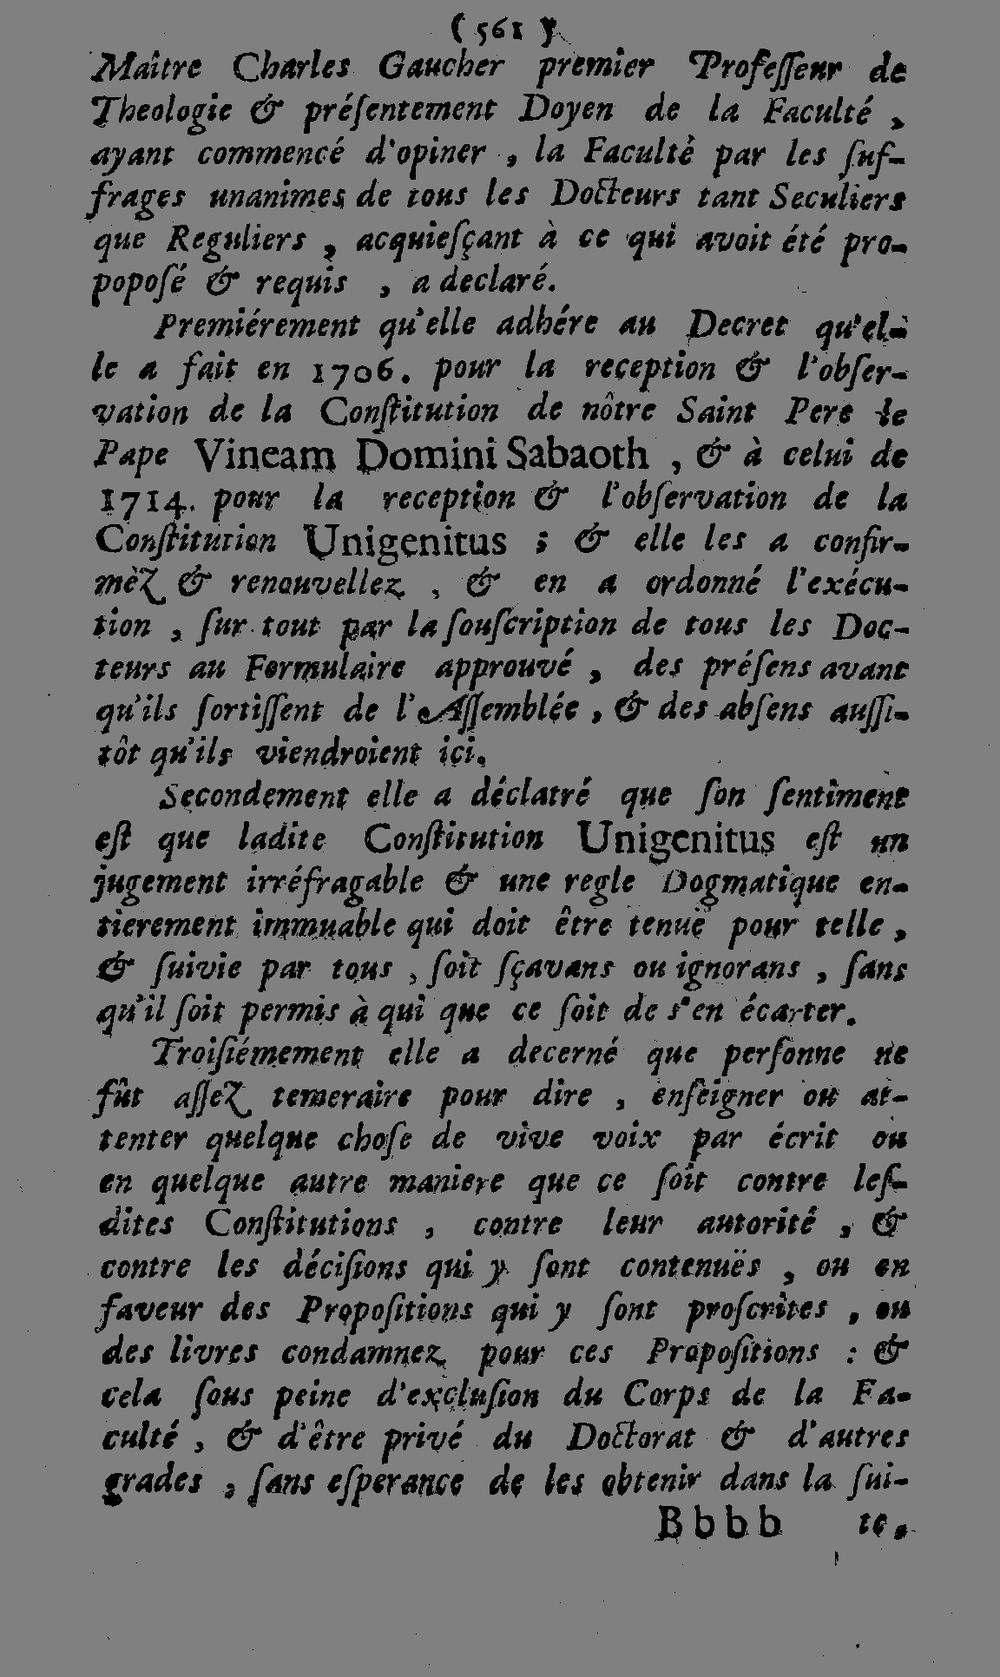 ( 561 )
Maître Charles Gaucher premier Professeur de
Theologie & préſentement Doyen de la Faculté ,
ayant commencé d'opiner , la Faculté par les ſuf-
frages unanimes de tous les Docteurs tant Seculiers
que Reguliers , acquieſçant à ce qui avoit été pro-
popoſé & requis , a declaré.
Premiérement qu'elle adhére au Decret qu'el-
le a fait en 1706. pour la reception & l'obſer-
vation de la Conſtitution de nôtre Saint Pere le
Pape Vineam Domini Sabaoth , & à celui de
1714. pour la reception & l'obſervation de la
Conſtitution Unigenitus ; & elle les a confir-
mèz & renouvellez , & en a ordonné l'exécu-
tion , ſur tout par la ſouſcription de tous les Doc-
teurs au Formulaire approuvé , des préſens avant
qu'ils ſortiſſent de l'Aſſemblée , & des abſens auſſi-
tôt qu'ils viendroient ici.
Secondement elle a déclatré que ſon ſentiment
eſt que ladite Conſtitution Unigenitus eſt un
jugement irréfragable & une regle Dogmatique en-
tierement immuable qui doit être tenuë pour telle ,
& ſuivie par tous , ſoit ſçavans ou ignorans , ſans
qu'il ſoit permis à qui que ce ſoit de s'en écarter.
Troiſiémement elle a decerné que perſonne ne
fût aſſez temeraire pour dire , enſeigner ou at-
tenter quelque choſe de vive voix par écrit ou
en quelque autre maniere que ce ſoit contre leſ-
dites Conſtitutions , contre leur autorité , &
contre les déciſions qui y ſont contenuës , ou en
faveur des Propoſitions qui y ſont proſcrites , ou
des livres condamnez pour ces Propoſitions : &
cela ſous peine d'excluſion du Corps de la Fa-
culté , & d'être privé du Doctorat & d'autres
grades , ſans eſperance de les obtenir dans la ſui-
Bbbb te.